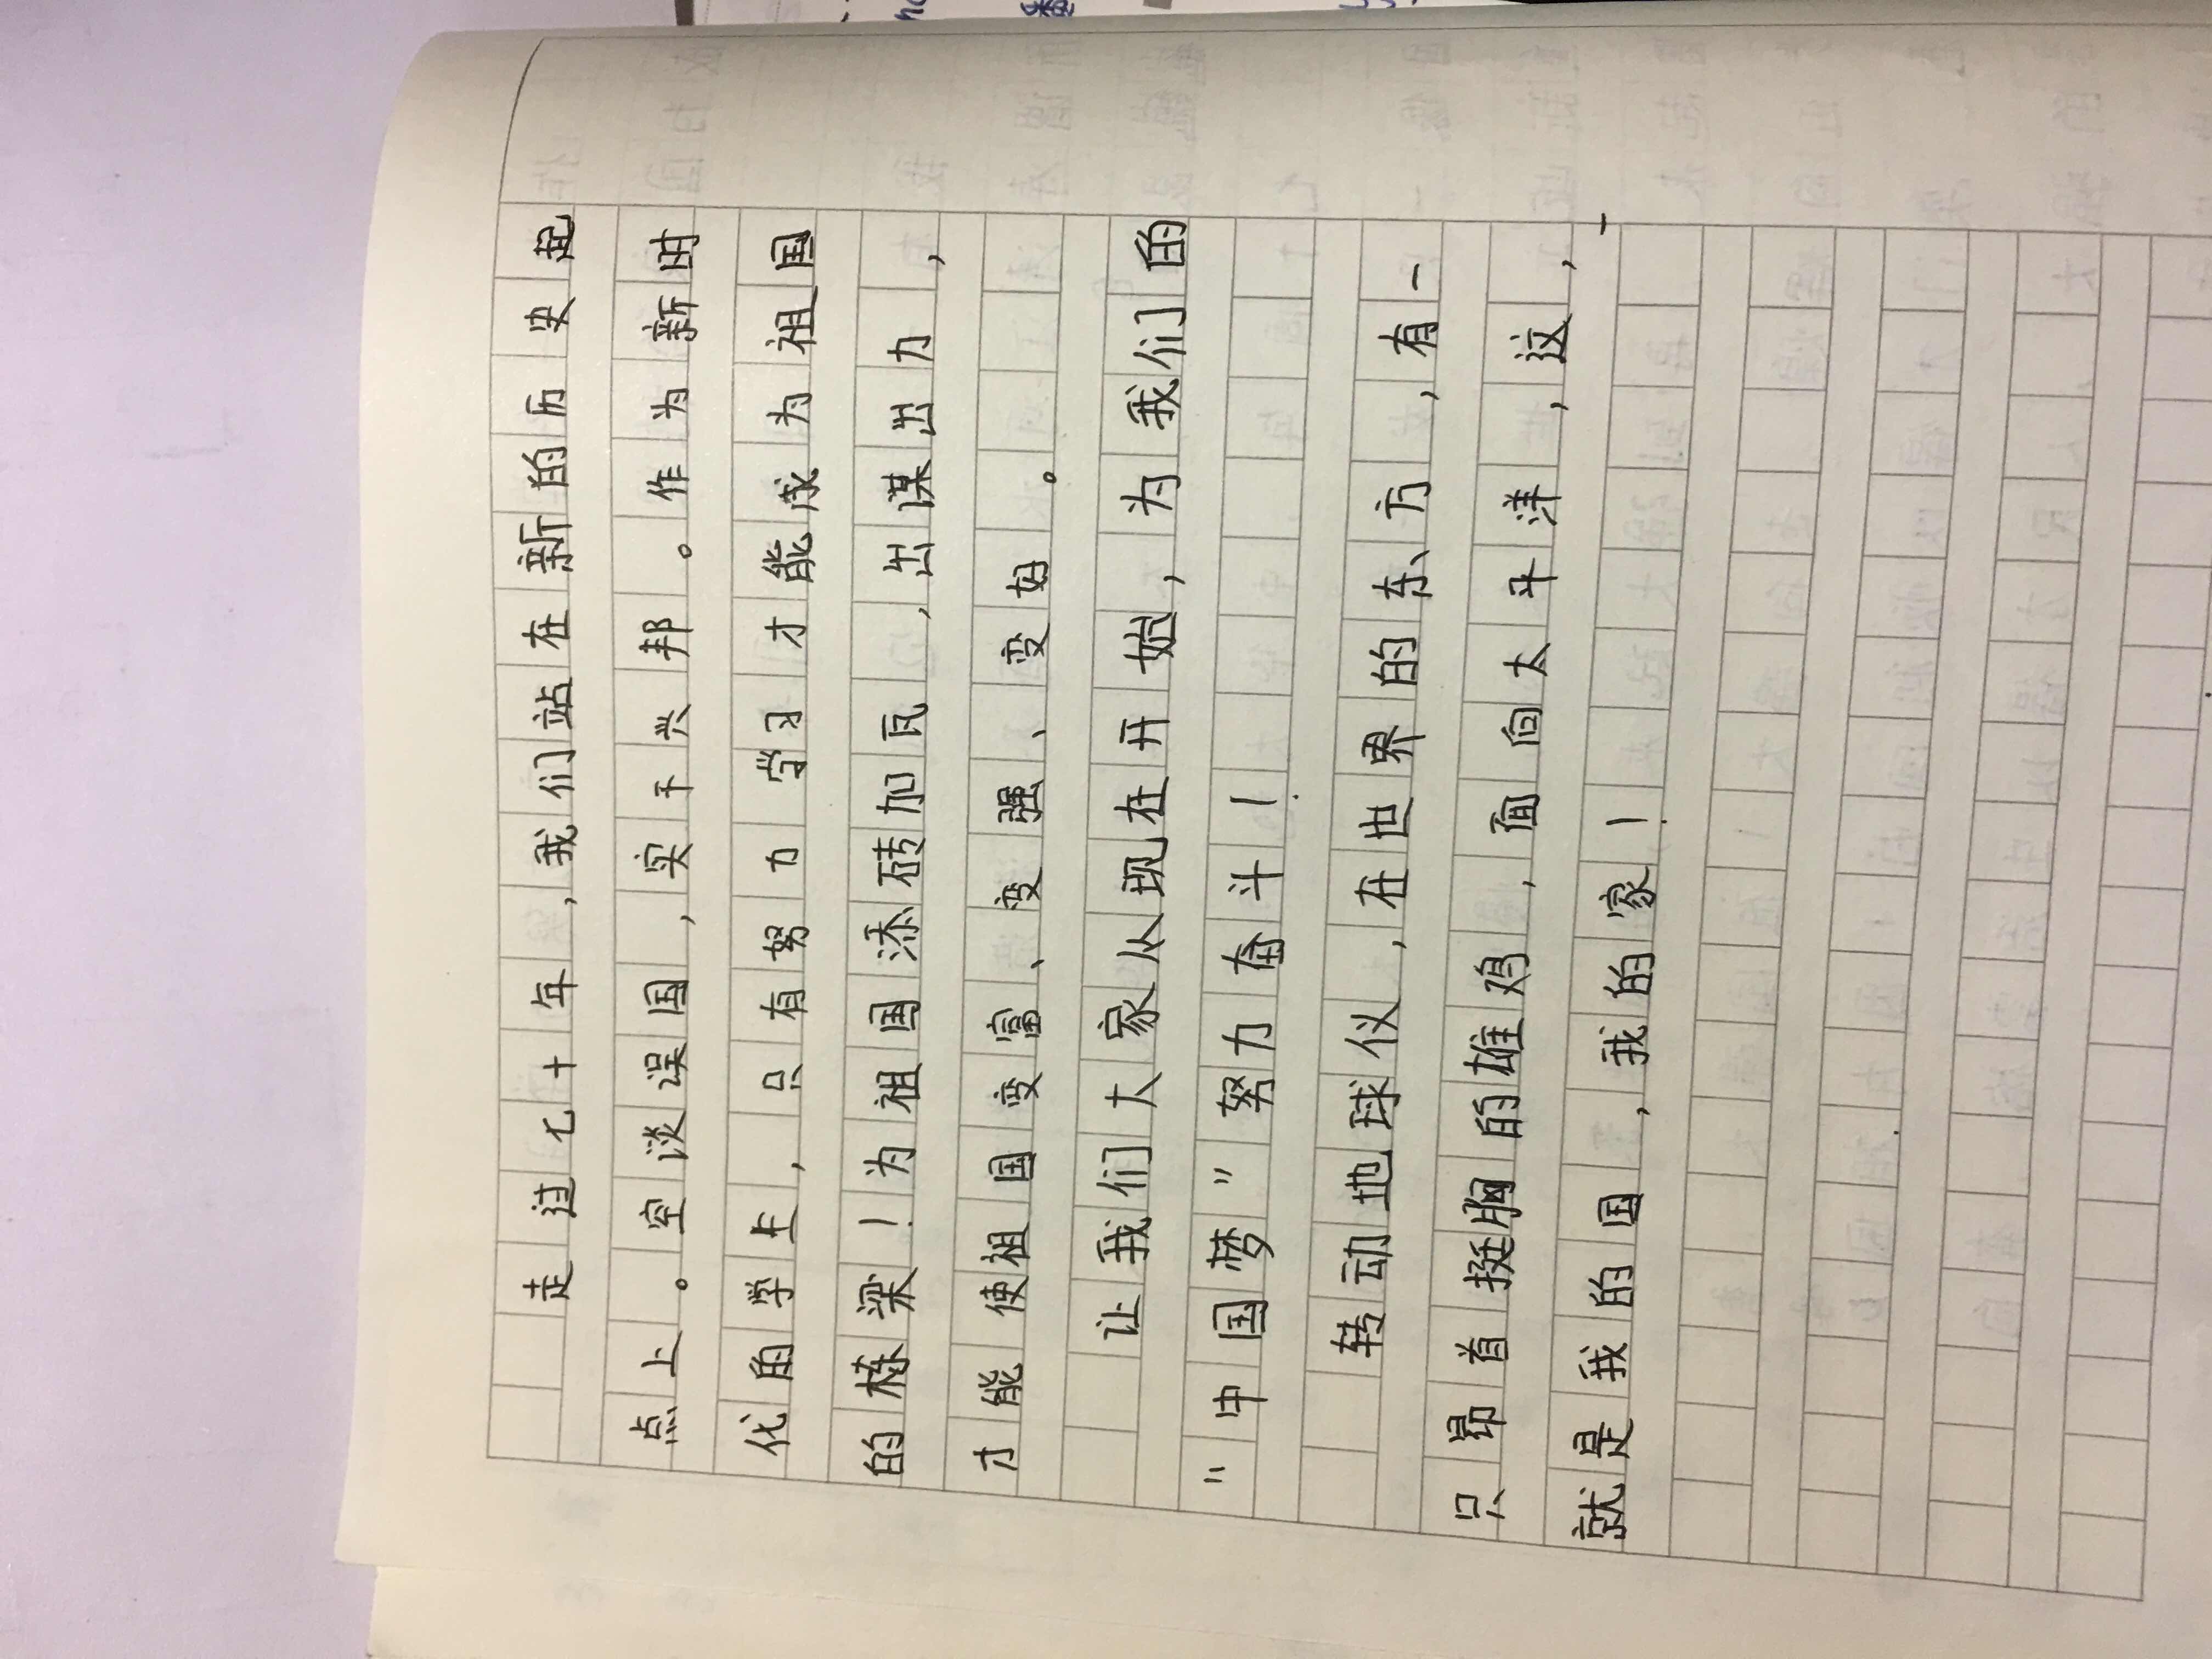 走过七十年，我们站在新的历史起
点上。空谈误国，实干兴邦。作为新时
代的学生，只有努力学习才能成为祖国
的栋梁！为祖国添砖加瓦，出谋出力，
才能使祖国变富、变强、变好。
让我们大家从现在开始，为我们的
“中国梦”努力奋斗！
转动地球仪，在世界的东方，有一
只昂首挺胸的雄鸡，面向太平洋，这，
就是我的国，我的家！